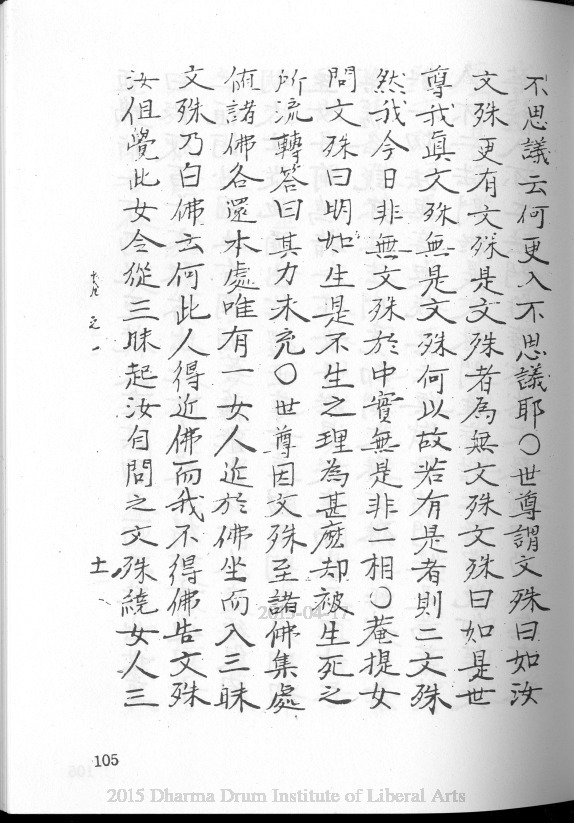 不思議云何更入不思議耶〇世尊謂文殊曰如汝
文殊更有文殊是文殊者為無文殊文殊曰如是世
尊我真文殊無是文殊何以故若有是者則二文殊
然我今日非無文殊於中實無是非二相〇菴提女
問文殊曰明知生是不生之理為甚麼却被生死之
所流轉答曰其力未充〇世尊因文殊至諸佛集處
値諸佛各還本處唯有一女人近於佛坐而入三昧
文殊乃白佛云何此人得近佛而我不得佛告文殊
汝但覺此女令從三昧起汝自問之文殊繞女人三
之一
十一
105
2015-04-17
2015 Dharma Drum Institute of Liberal Arts